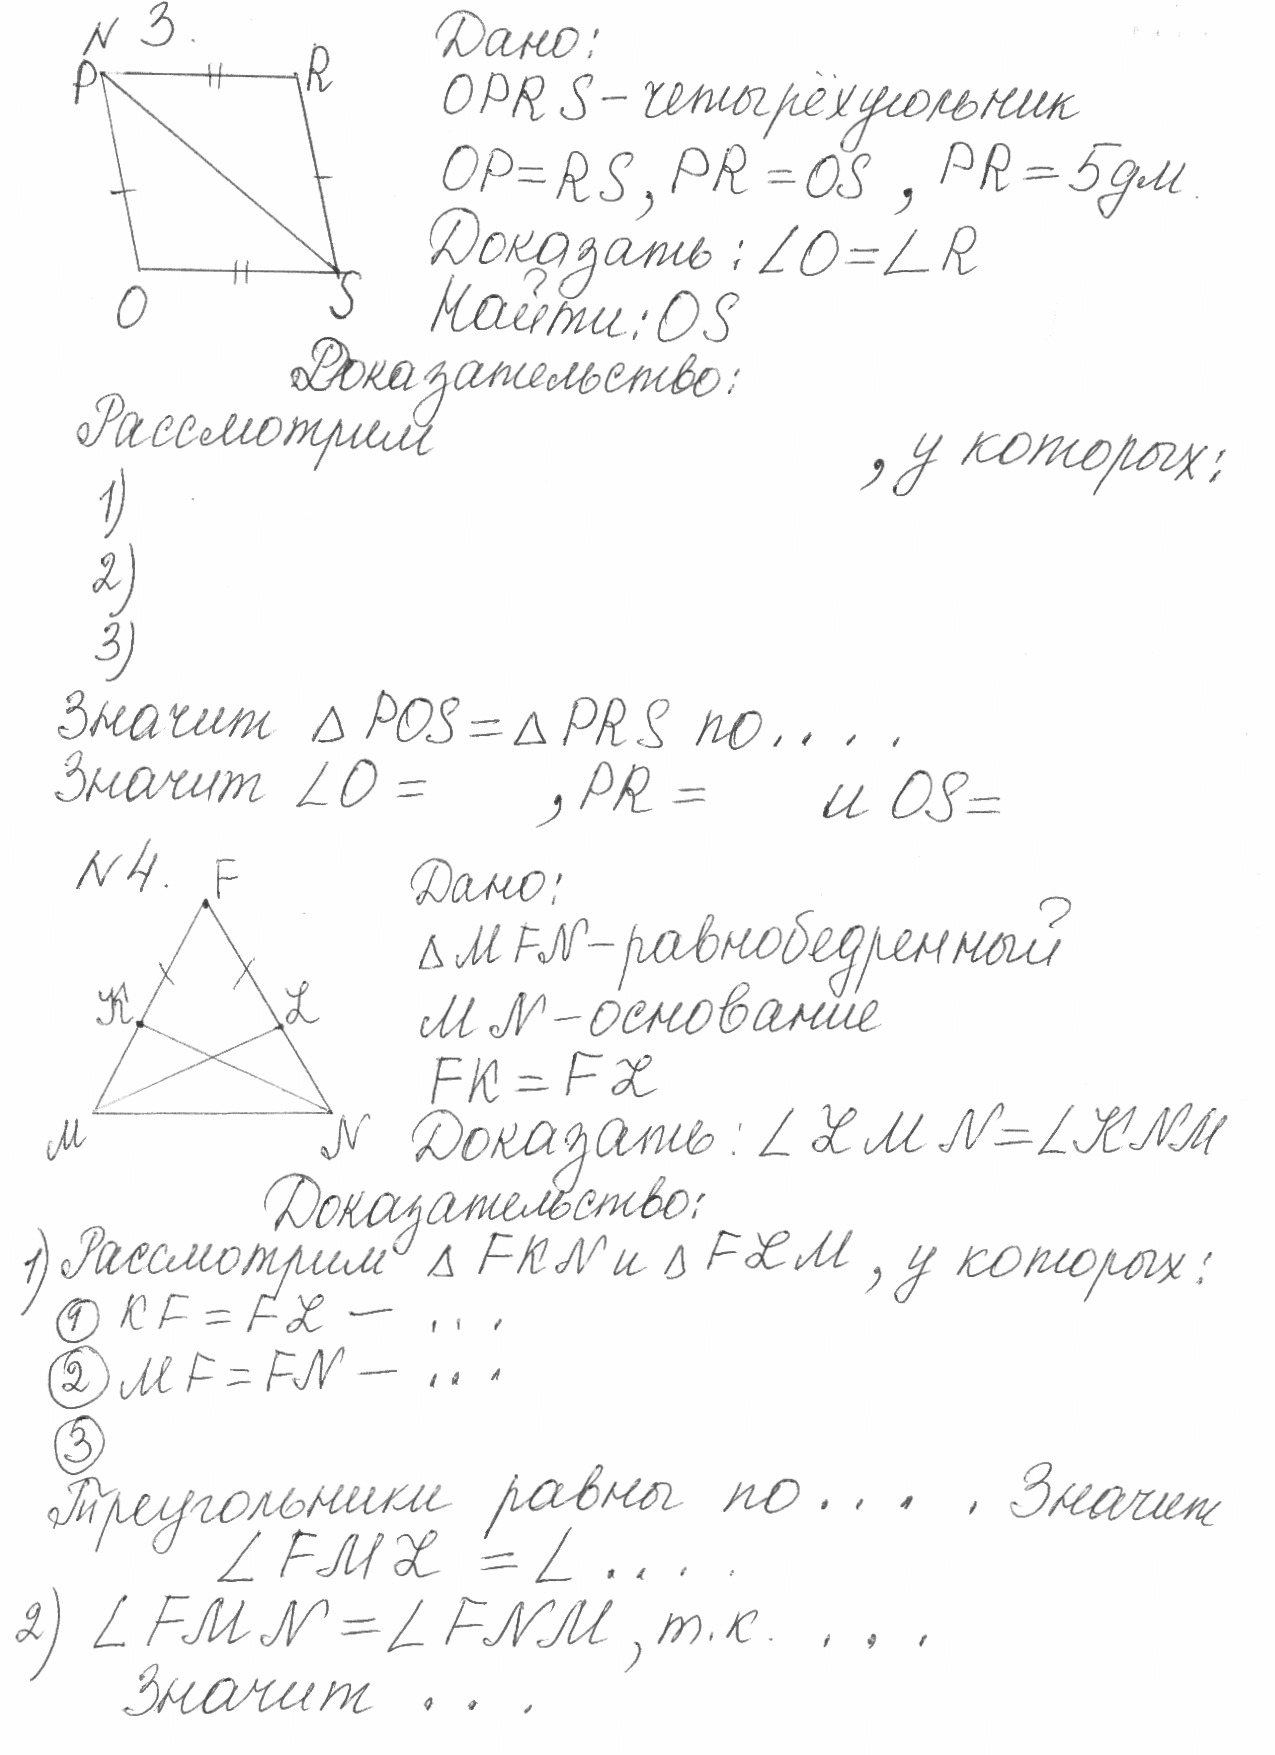 N 3.
P
R
O
S
Дано:
OPRS – четырёхугольник
OP = RS, PR = OS, PR = 5 дм.
Доказать: ∠O = ∠R
Найти: OS
Доказательство:
Рассмотрим , у которых:
1)
2)
3)
Значит △ POS = △ PRS по . . . .
Значит ∠O = , PR = и OS =
N 4.
F
K
L
M
N
Дано:
△ MFN – равнобедренный
MN – основание
FK = FL
Доказать: ∠LMN = ∠KNM
Доказательство:
1) Рассмотрим △ FKN и △ FLM, у которых:
① KF = FL – . . .
② MF = FN – . . .
③
Треугольники равны по . . . . Значит
∠FML = ∠ . . . .
2) ∠FMN = ∠FNM, т.к. . . .
Значит . . .